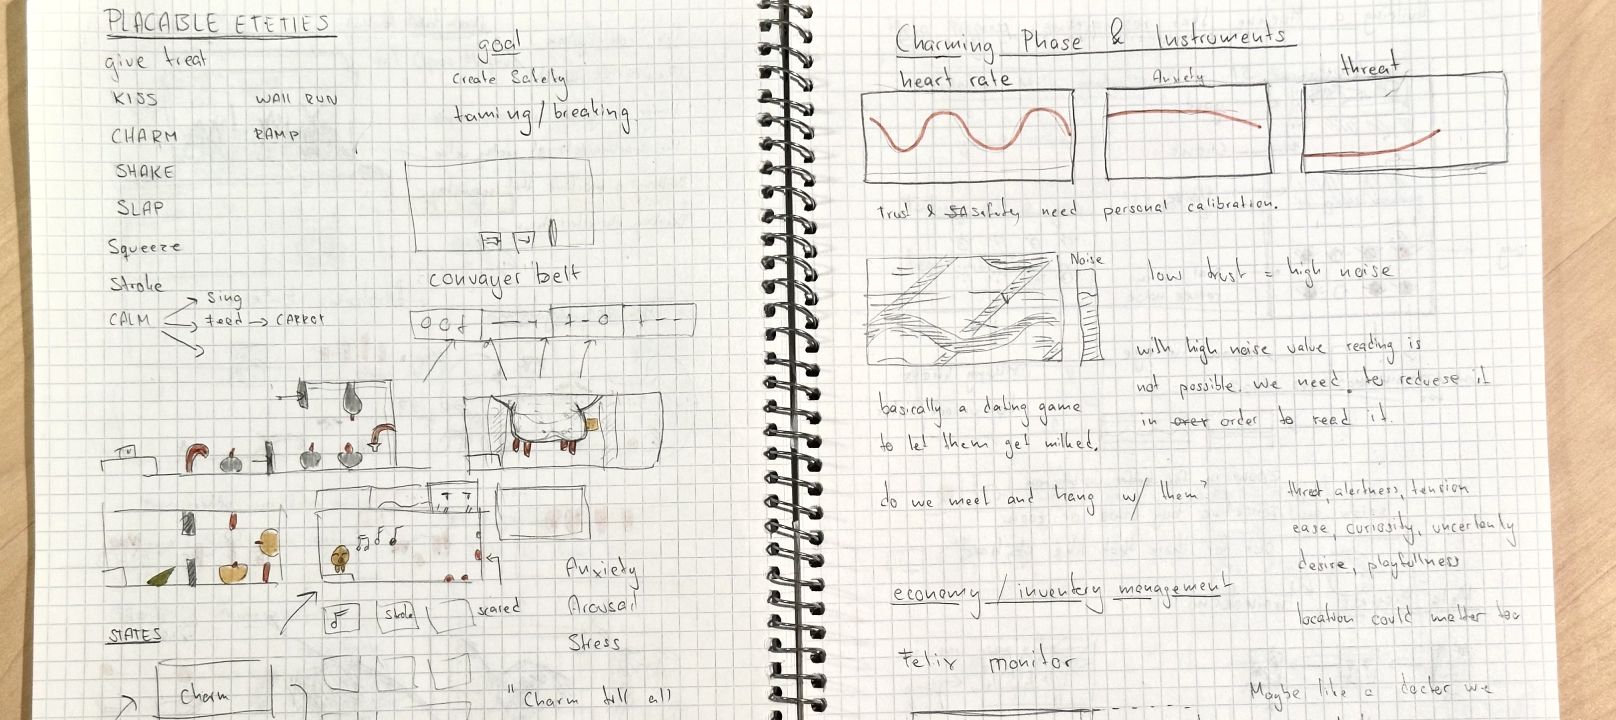 PLACABLE ETETIES
give treat
KISS WALL RUN
CHARM RAMP
SHAKE
SLAP
Squeeze
Stroke
CALM
sing
feed → CARROT
goal
Create Safety
taming/breaking
convayer belt
STATES
Charm
scared
Anxiety
Arousal
Stress
"Charm till all
Charming Phase & Instruments
heart rate
Anxiety
threat
Trust & safety need personal calibration.
Noise
low trust = high noise
with high noise value reading is
not possible. we need to reduese it
in over order to read it.
basically a dating game
to let them get milked.
do we meet and hang w/ them?
threat, alertness, tension
ease, curiosity, uncertenty
desire, playfullness
location could matter too
economy / inventery management
Felix monitor
Maybe like a docter we